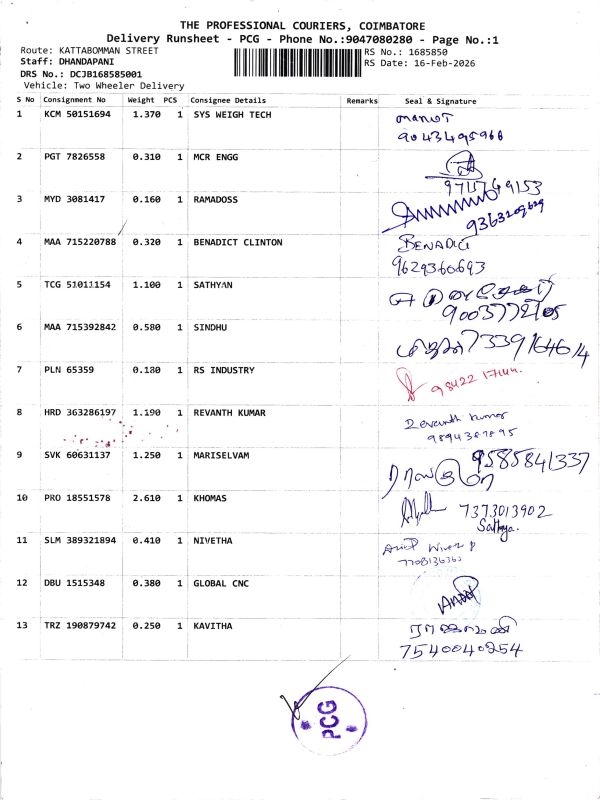 THE PROFESSIONAL COURIERS, COIMBATORE
Delivery Runsheet - PCG - Phone No.:9047080280 - Page No.:1
Route: KATTABOMMAN STREET RS No.: 1685850
Staff: DHANDAPANI RS Date: 16-Feb-2026
DRS No.: DCJB168585001
Vehicle: Two Wheeler Delivery
S No Consignment No Weight PCS Consignee Details Remarks Seal & Signature
1 KCM 50151694 1.370 1 SYS WEIGH TECH
9043495966
2 PGT 7826558 0.310 1 MCR ENGG
3 MYD 3081417 0.160 1 RAMADOSS
4 MAA 715220788 0.320 1 BENADICT CLINTON BENADICT
9629360693
5 TCG 51011154 1.100 1 SATHYAN
6 MAA 715392842 0.580 1 SINDHU
7 PLN 65359 0.180 1 RS INDUSTRY
8 HRD 363286197 1.190 1 REVANTH KUMAR Revanth Kumar
9 SVK 60631137 1.250 1 MARISELVAM 9585841337
10 PRO 18551578 2.610 1 KHOMAS 7373013902
Sathya.
11 SLM 389321894 0.410 1 NIVETHA
12 DBU 1515348 0.380 1 GLOBAL CNC
13 TRZ 190879742 0.250 1 KAVITHA
7540040254
PCG